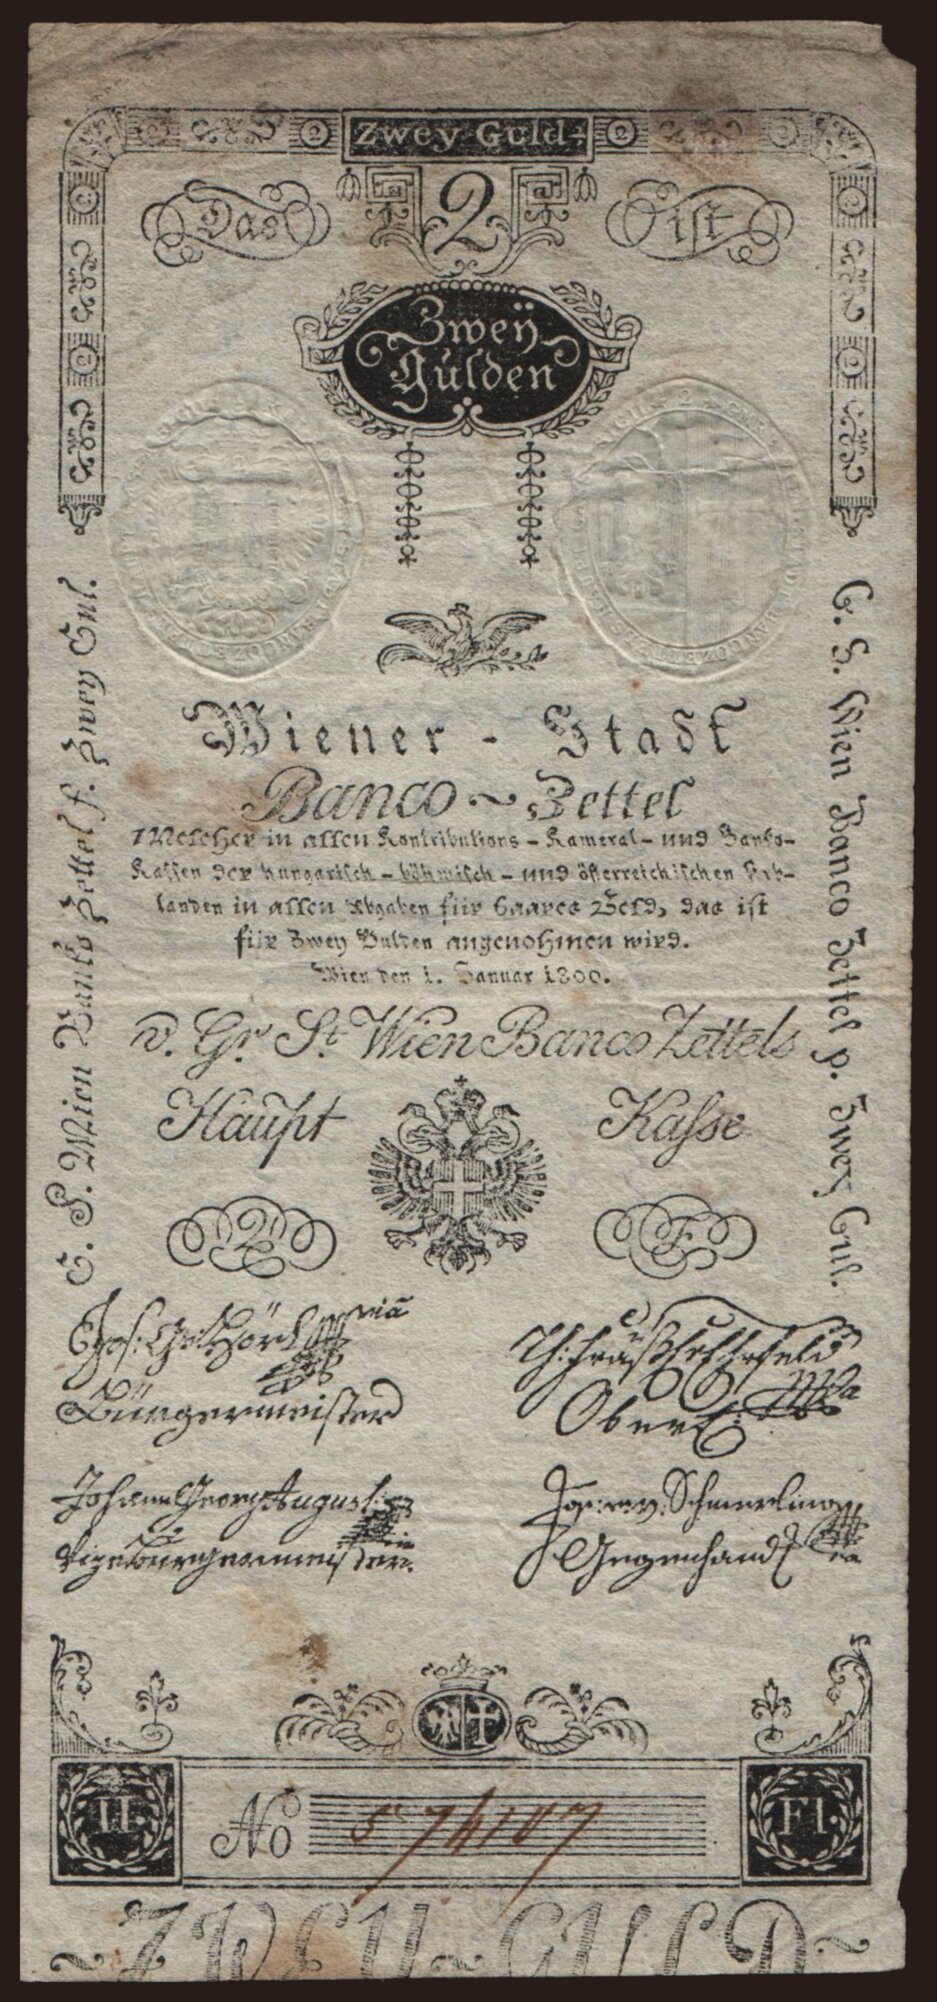 Zwey Guld
2 2
Das 2 ist
Zweÿ
Gulden
Wiener - Stadt
Banco ~ Zettel
Welcher in allen Kontributions - Kameral - und Banko-
Kassen der hungarisch - böhmisch - und österreichischen Erb-
landen in allen Abgaben für baares Geld, das ist
für Zwey Gulden angenohmen wird.
Wien den 1. Januar 1800.
v. Gr. St. Wien Banco Zettels
Haupt Kasse
2 F
Bürgermeister
Johann Georg Augusti
Vizebürgermeister
v. Schmerling
Gegenhand
C. S. Wien Banko Zettel f. Zwey Gul.
C. S. Wien Banco Zettel p. Zwey Gul.
II. No 574107 Fl.
ZWEY ~ GULD